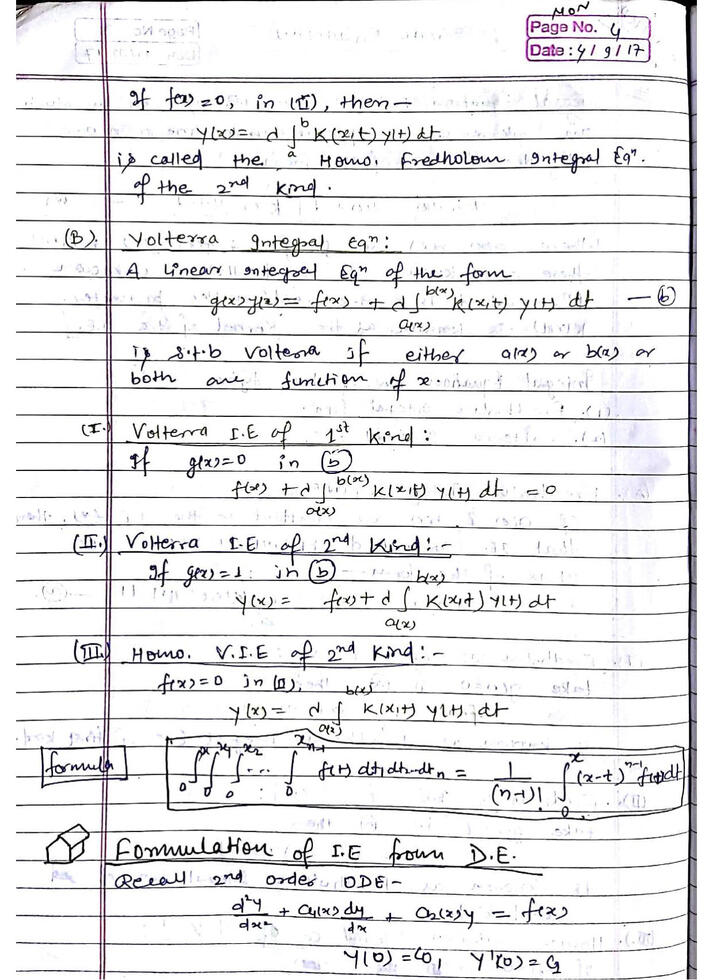 MON
Page No. 4
Date: 4/9/17
If f(x)=0, in (II), then —
y(x)= λ ∫_a^b K(x,t) y(t) dt
is called the Homo. Fredholom Integral Eqⁿ.
of the 2nd kind.
(B). Volterra Integral eqⁿ:
A linear integral Eqⁿ of the form
g(x)y(x) = f(x) + λ ∫_{a(x)}^{b(x)} K(x,t) y(t) dt — (b)
is s.t.b Volterra if either a(x) or b(x) or
both are function of x.
(I.) Volterra I.E of 1st Kind:
If g(x)=0 in (b)
f(x) + λ ∫_{a(x)}^{b(x)} K(x,t) y(t) dt = 0
(II.) Volterra I.E of 2nd Kind:-
If g(x)=1 in (b)
y(x) = f(x) + λ ∫_{a(x)}^{b(x)} K(x,t) y(t) dt
(III.) Homo. V.I.E of 2nd Kind:-
f(x)=0 in (II),
y(x) = λ ∫_{a(x)}^{b(x)} K(x,t) y(t) dt
formula ∫_0^x ∫_0^{x_1} ∫_0^{x_2} ... ∫_0^{x_{n-1}} f(t) dt_1 dt_2 - dt_n = 1/(n-1)! ∫_0^x (x-t)^{n-1} f(t) dt
Formulation of I.E from D.E.
Recall 2nd order ODE-
d²y/dx² + a_1(x) dy/dx + a_2(x)y = f(x)
y(0) = c_0, y'(0) = c_1